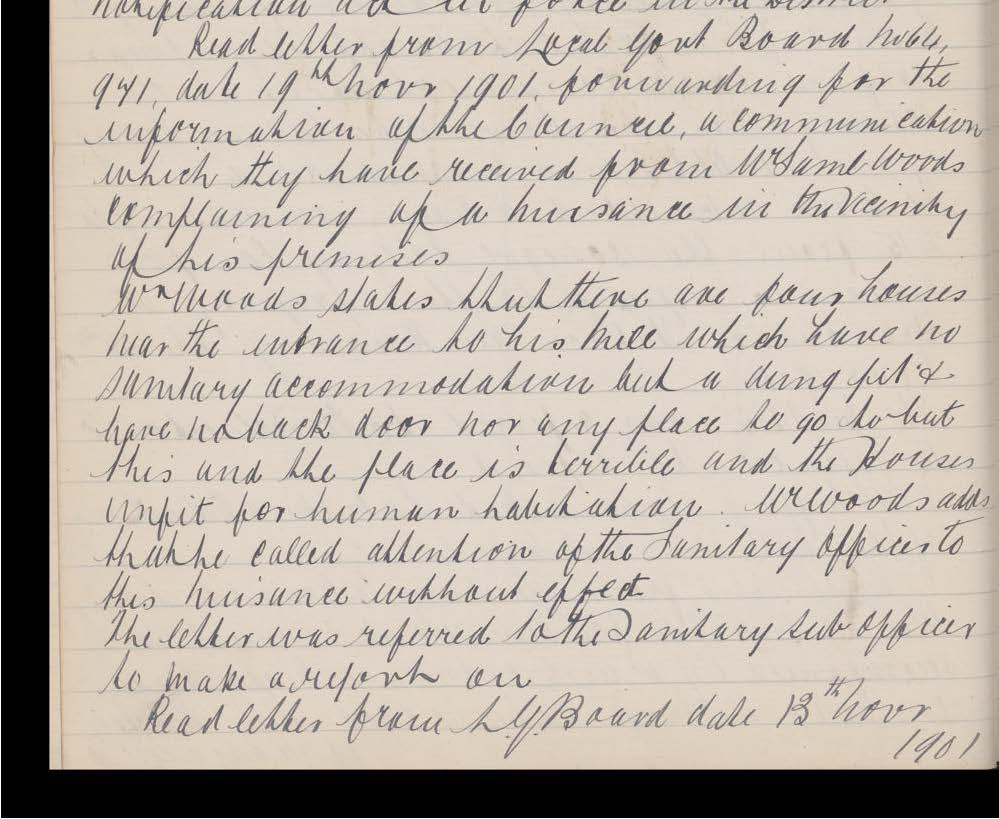 notification act in force in the District
Read letter from Local Govt Board No 64,
941, date 19th Novr 1901, forwarding for the
information of the Council, a communication
which they have received from Mr Saml Woods
complaining of a nuisance in the vicinity
of his premises
Mr Woods states that there are four houses
near the entrance to his Mill which have no
sanitary accommodation but a dung pit &
have no back door nor any place to go to but
this and the place is terrible and the Houses
unfit for human habitation. Mr Woods adds
that he called attention of the Sanitary Officer to
this nuisance without effect
The letter was referred to the Sanitary sub officer
to make a report on
Read letter from L.G. Board date 13th Novr
1901